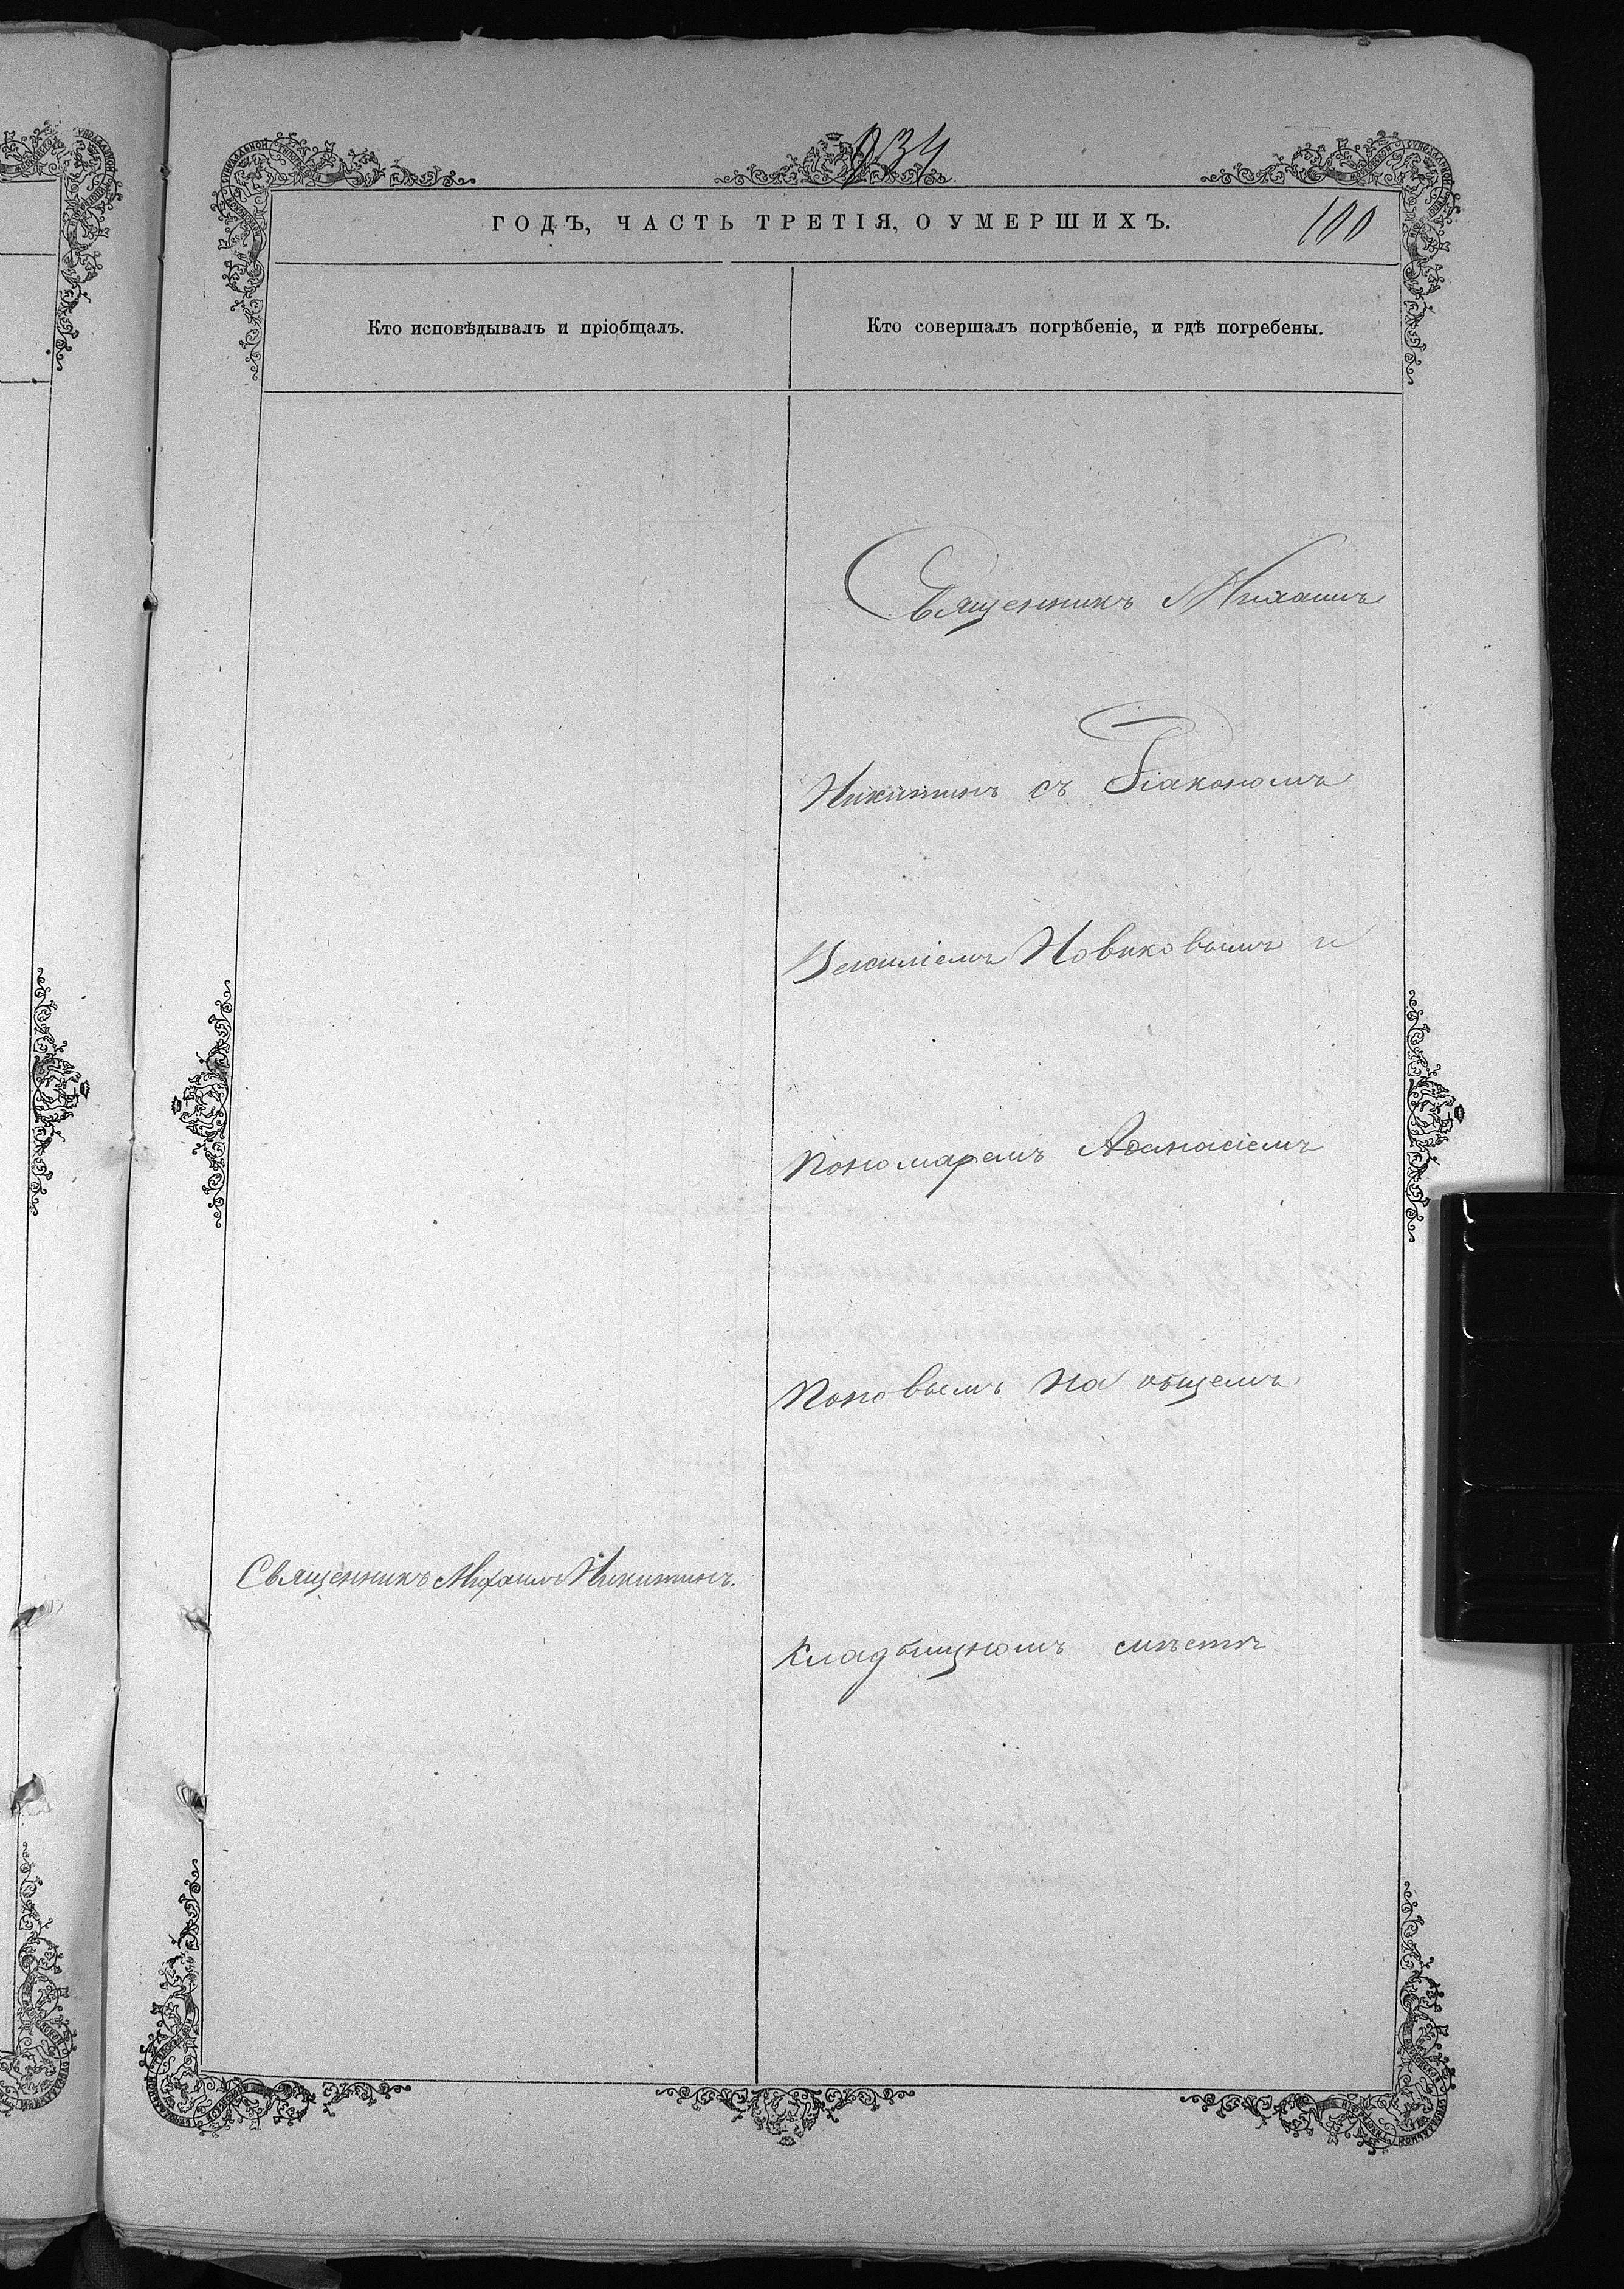 234
ГОДЪ, ЧАСТЬ ТРЕТІЯ, О УМЕРШИХЪ.
100
Кто исповѣдывалъ и пріобщалъ.
Кто совершалъ погрѣбеніе, и гдѣ погребены.
Священникъ Михаилъ
Никитинъ съ Діакономъ
Василіемъ Новиковымъ и
Пономаремъ Аѳанасіемъ
Поповымъ на общемъ
Священникъ Михаилъ Никитинъ.
Кладбищномъ мѣстѣ